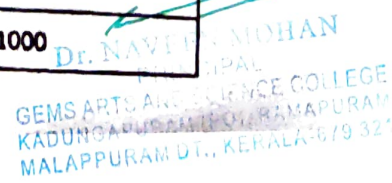 1000
Dr. NAVEEN MOHAN
PRINCIPAL
GEMS ARTS AND SCIENCE COLLEGE
KADUNGAPURAM (PO), RAMAPURAM
MALAPPURAM DT., KERALA-679 32